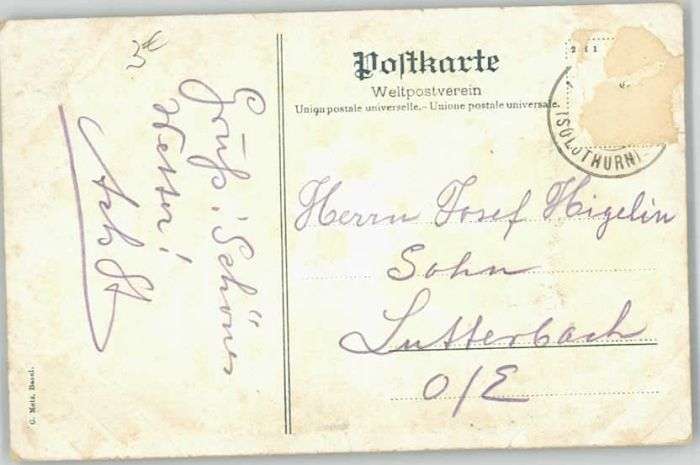 3€
Gruß! Schönes
Wetter!
Postkarte
Weltpostverein
Union postale universelle.- Unione postale universale.
(SOLOTHURN)
Herrn Josef Higelin
Sohn
Lutterbach
O/E
G. Metz, Basel.